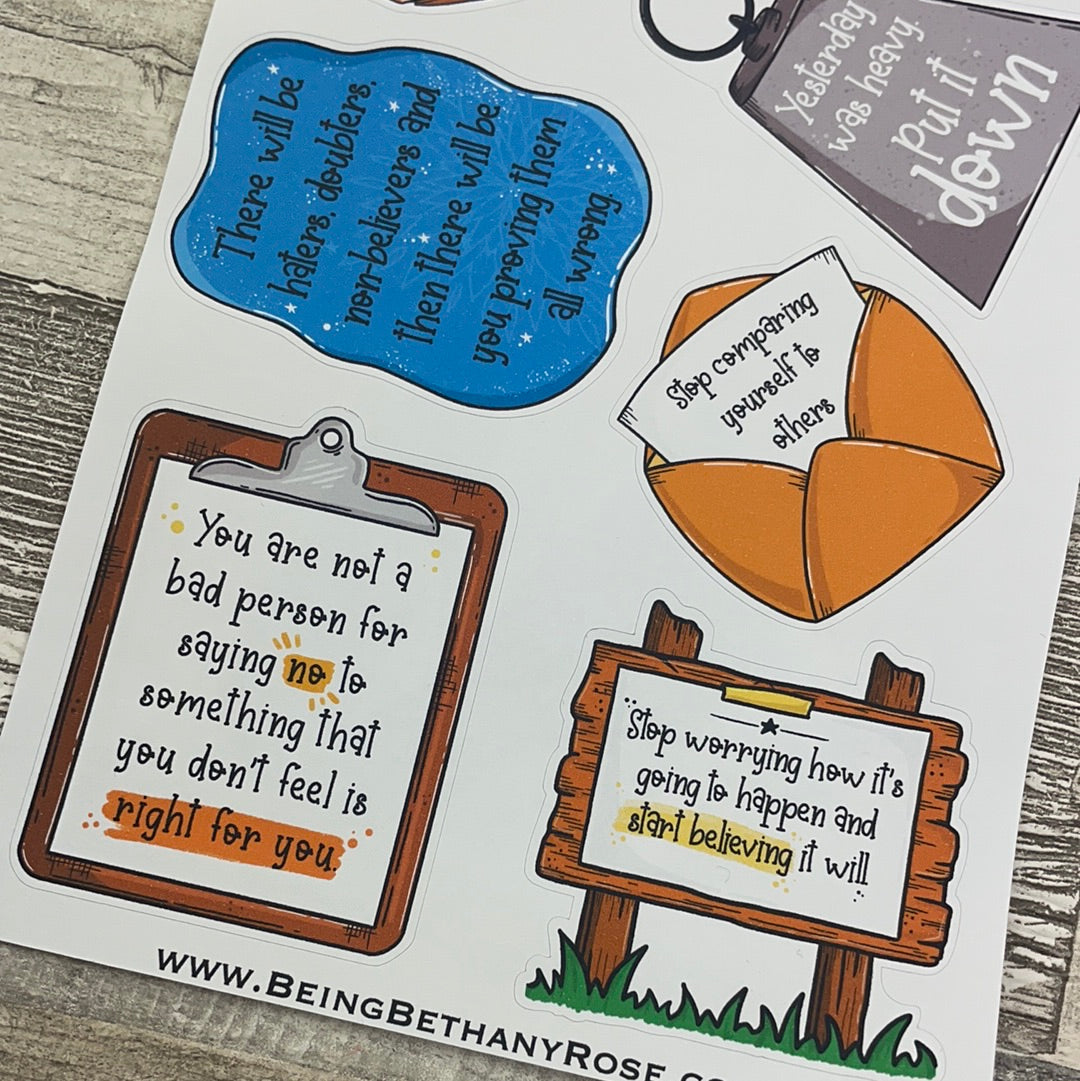 There will be
haters, doubters,
non-believers and
then there will be
you proving them
all wrong
Yesterday
was heavy.
Put it
down
Stop comparing
yourself to
others
You are not a
bad person for
saying no to
something that
you don't feel is
right for you.
Stop worrying how it's
going to happen and
start believing it will
www.BeingBethanyRose.co